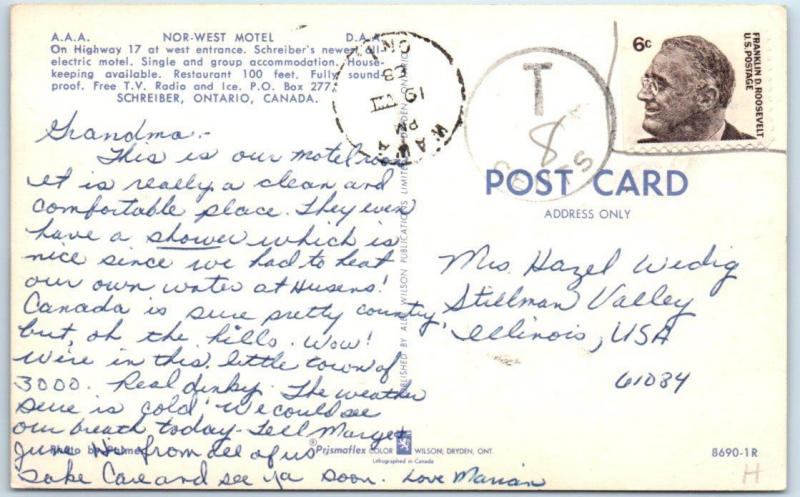 A.A.A. NOR-WEST MOTEL D.A.A.
On Highway 17 at west entrance. Schreiber's newest all-
electric motel. Single and group accommodation. House-
keeping available. Restaurant 100 feet. Fully sound-
proof. Free T.V. Radio and Ice. P.O. Box 277,
SCHREIBER, ONTARIO, CANADA.
Grandma -
This is our motel room
It is really a clean and
comfortable place. They even
have a shower which is
nice since we had to heat
our own water at Husens!
Canada is sure pretty country,
but, oh the hills. Wow!
We're in this little town of
3000. Real dinky. The weather
sure is cold. We could see
our breath today - Tell
June Hi from all of us
Take Care and see ya soon. Love Marian
Photo by
Prismaflex COLOR WILSON; DRYDEN, ONT.
Lithographed in Canada
PUBLISHED BY ALEX WILSON PUBLICATIONS LIMITED, DRYDEN, ONTARIO
WAWA
PM
19 VIII
69
ON
T
8
CENTS
6c
FRANKLIN D. ROOSEVELT
U.S. POSTAGE
POST CARD
ADDRESS ONLY
Mrs. Hazel Wedig
Stillman Valley
Illinois, USA
61084
8690-1R
H